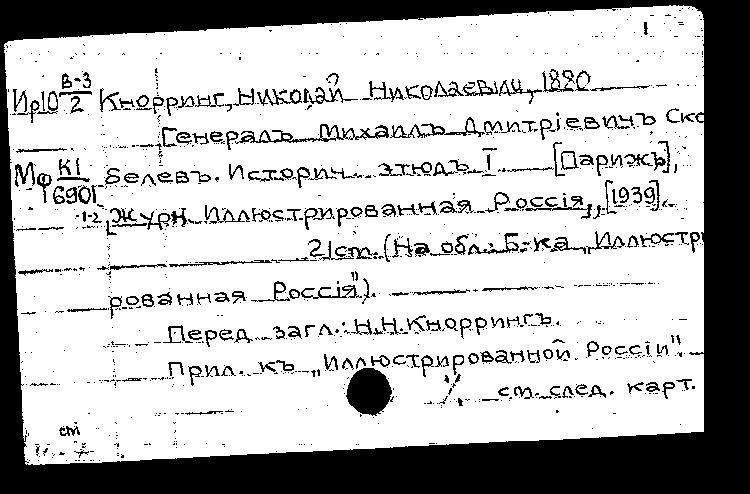 1
Ир10 В-3/2 Кнорринг, Николай Николаевич, 1880
Генералъ Михаилъ Дмитріевичъ Ско
Мф К1/6901 белевъ. Историч. этюдъ I [Парижъ],
1-2 журн. Иллюстрированная Россія, [1939].
21cm. (На обл.: Б-ка „Иллюстри
рованная Россія").
Перед загл.: Н.Н.Кноррингъ.
Прил. къ „Иллюстрированной Россіи".
см. след. карт.